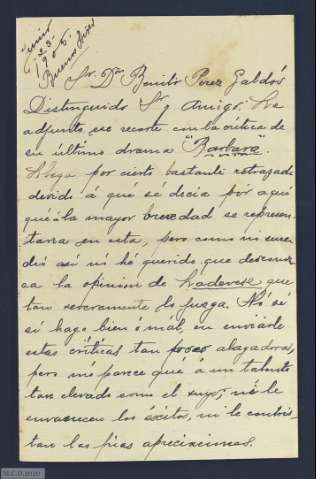 Junio
23.
1905.
Buenos Aires
Sr. Dn. Benito Perez Galdós
Distinguido Sr. y amigo: Le
adjunto, ese recorte con la critica de
su último drama "Barbara".
Llega por cierto bastante retrazado
devido á que se decia por aqui
que á la mayor brevedad se represen-
taria en esta, pero como ni suce-
dió asi ni hé querido que descono-
ca la opinion de que
tan severamente lo juzga. Nó sé
si hago bien ó mál, en enviárle
estas criticas tan poco alagadoras,
pero me parece que á un talento
tan elevado como el suyo, ni le
envanecen los éxitos, ni le contris-
tan las frias apreciaciones.